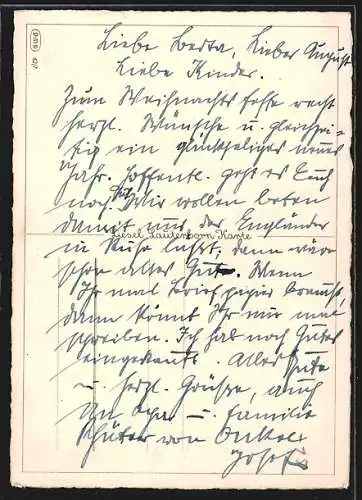 Liebe Berta, Lieber August
Liebe Kinder.
Zum Weihnachtsfeste recht
herzl. Wünsche u. gleichzei-
tig ein glückseliges neues
Jahr. Hoffentl. geht es Euch
noch gut. Wir wollen beten
damit uns der Engländer
Liesel Lautenborn Karte
in Ruhe läßt, dann wäre
schon alles Gut. Wenn
Ihr mal Briefpapier braucht,
dann könnt Ihr mir mal
schreiben. Ich hab noch Gutes
eingekauft. Alles Gute
u. herzl. Grüsse, auch
an Opa u. Familie
von Onkel
Josef